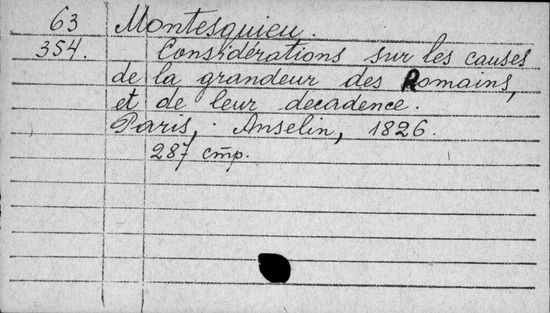 63 Montesquieu.
354. Considérations sur les causes
de la grandeur des Romains,
et de leur decadence.
Paris, Anselin, 1826.
287 стр.